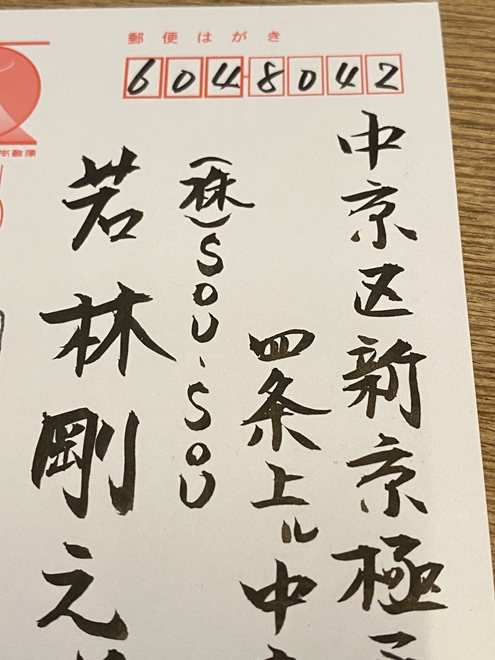 郵便はがき
6048042
中京区新京極
四条上ル中
(株)SOU・SOU
若林剛之